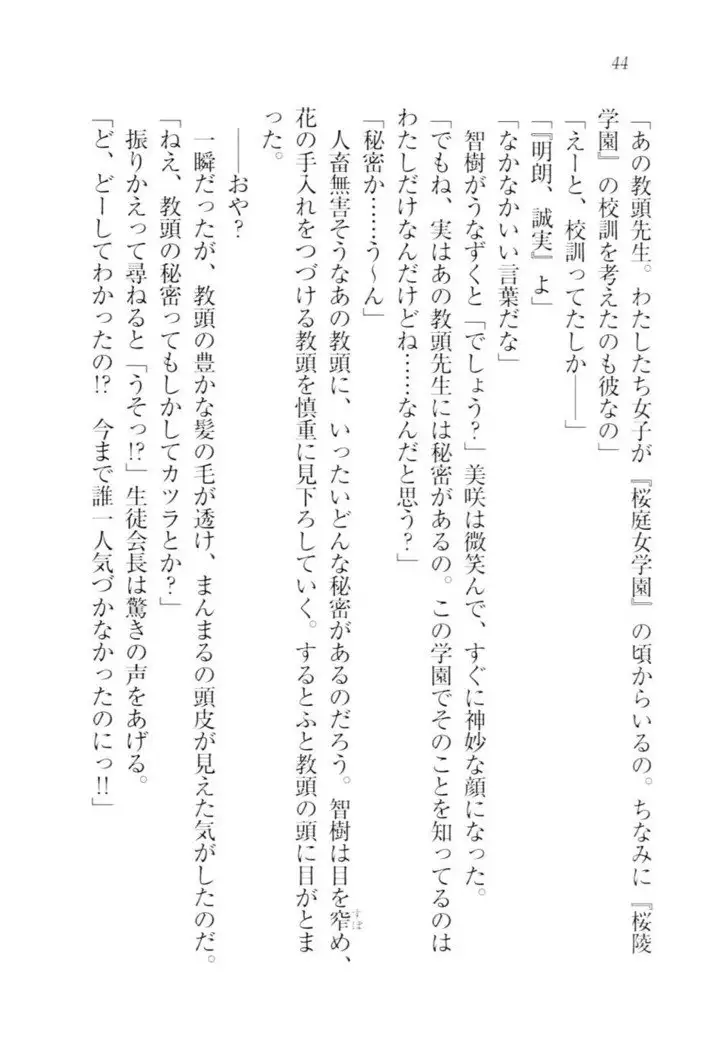 44
「あの教頭先生。わたしたち女子が『桜庭女学園』の頃からいるの。ちなみに『桜陵
学園』の校訓を考えたのも彼なの」
「えーと、校訓ってたしか――」
「『明朗、誠実』よ」
「なかなかいい言葉だな」
　智樹がうなずくと「でしょう？」美咲は微笑んで、すぐに神妙な顔になった。
「でもね、実はあの教頭先生には秘密があるの。この学園でそのことを知ってるのは
わたしだけなんだけどね……なんだと思う？」
「秘密か……う～ん」
　人畜無害そうなあの教頭に、いったいどんな秘密があるのだろう。智樹は目を窄め、
すぼ
花の手入れをつづける教頭を慎重に見下ろしていく。するとふと教頭の頭に目がとま
った。
　――おや？
　一瞬だったが、教頭の豊かな髪の毛が透け、まんまるの頭皮が見えた気がしたのだ。
「ねえ、教頭の秘密ってもしかしてカツラとか？」
　振りかえって尋ねると「うそっ!?」生徒会長は驚きの声をあげる。
「ど、どーしてわかったの!?　今まで誰一人気づかなかったのにっ!!」